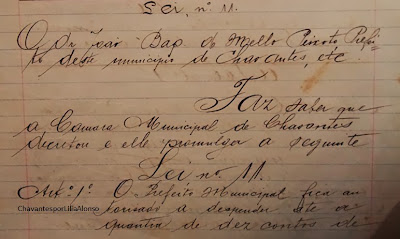 Lei, nº 11.
O dr. João Bap. de Mello Peixoto Prefei-
to deste municipio de Chavantes, etc.
Faz saber que
a Camara Municipal de Chavantes
decretou e elle promulga a seguinte
Lei nº 11.
Art. 1º O Prefeito Municipal fica au
torisado a despender até a
quantia de dez contos de
ChavantesporLiliaAlonso